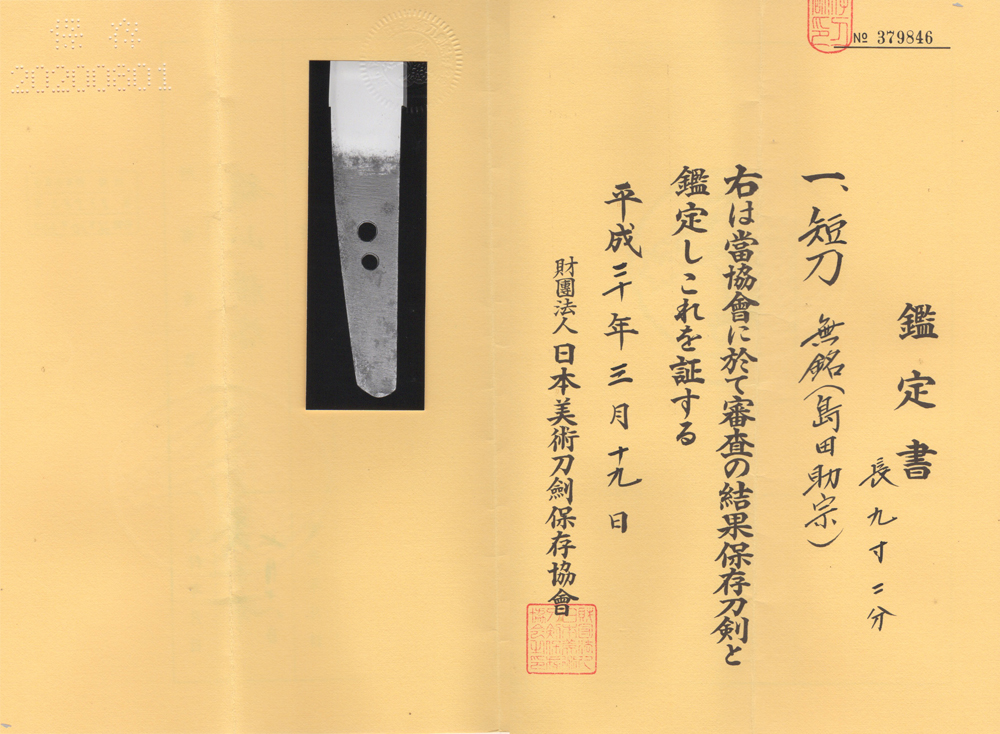 № 379846
鑑定書
一、短刀 無銘(島田助宗)
長九寸二分
右は當協會に於て審査の結果保存刀剣と
鑑定しこれを証する
平成二十年三月十九日
財團法人日本美術刀劍保存協會
20200801